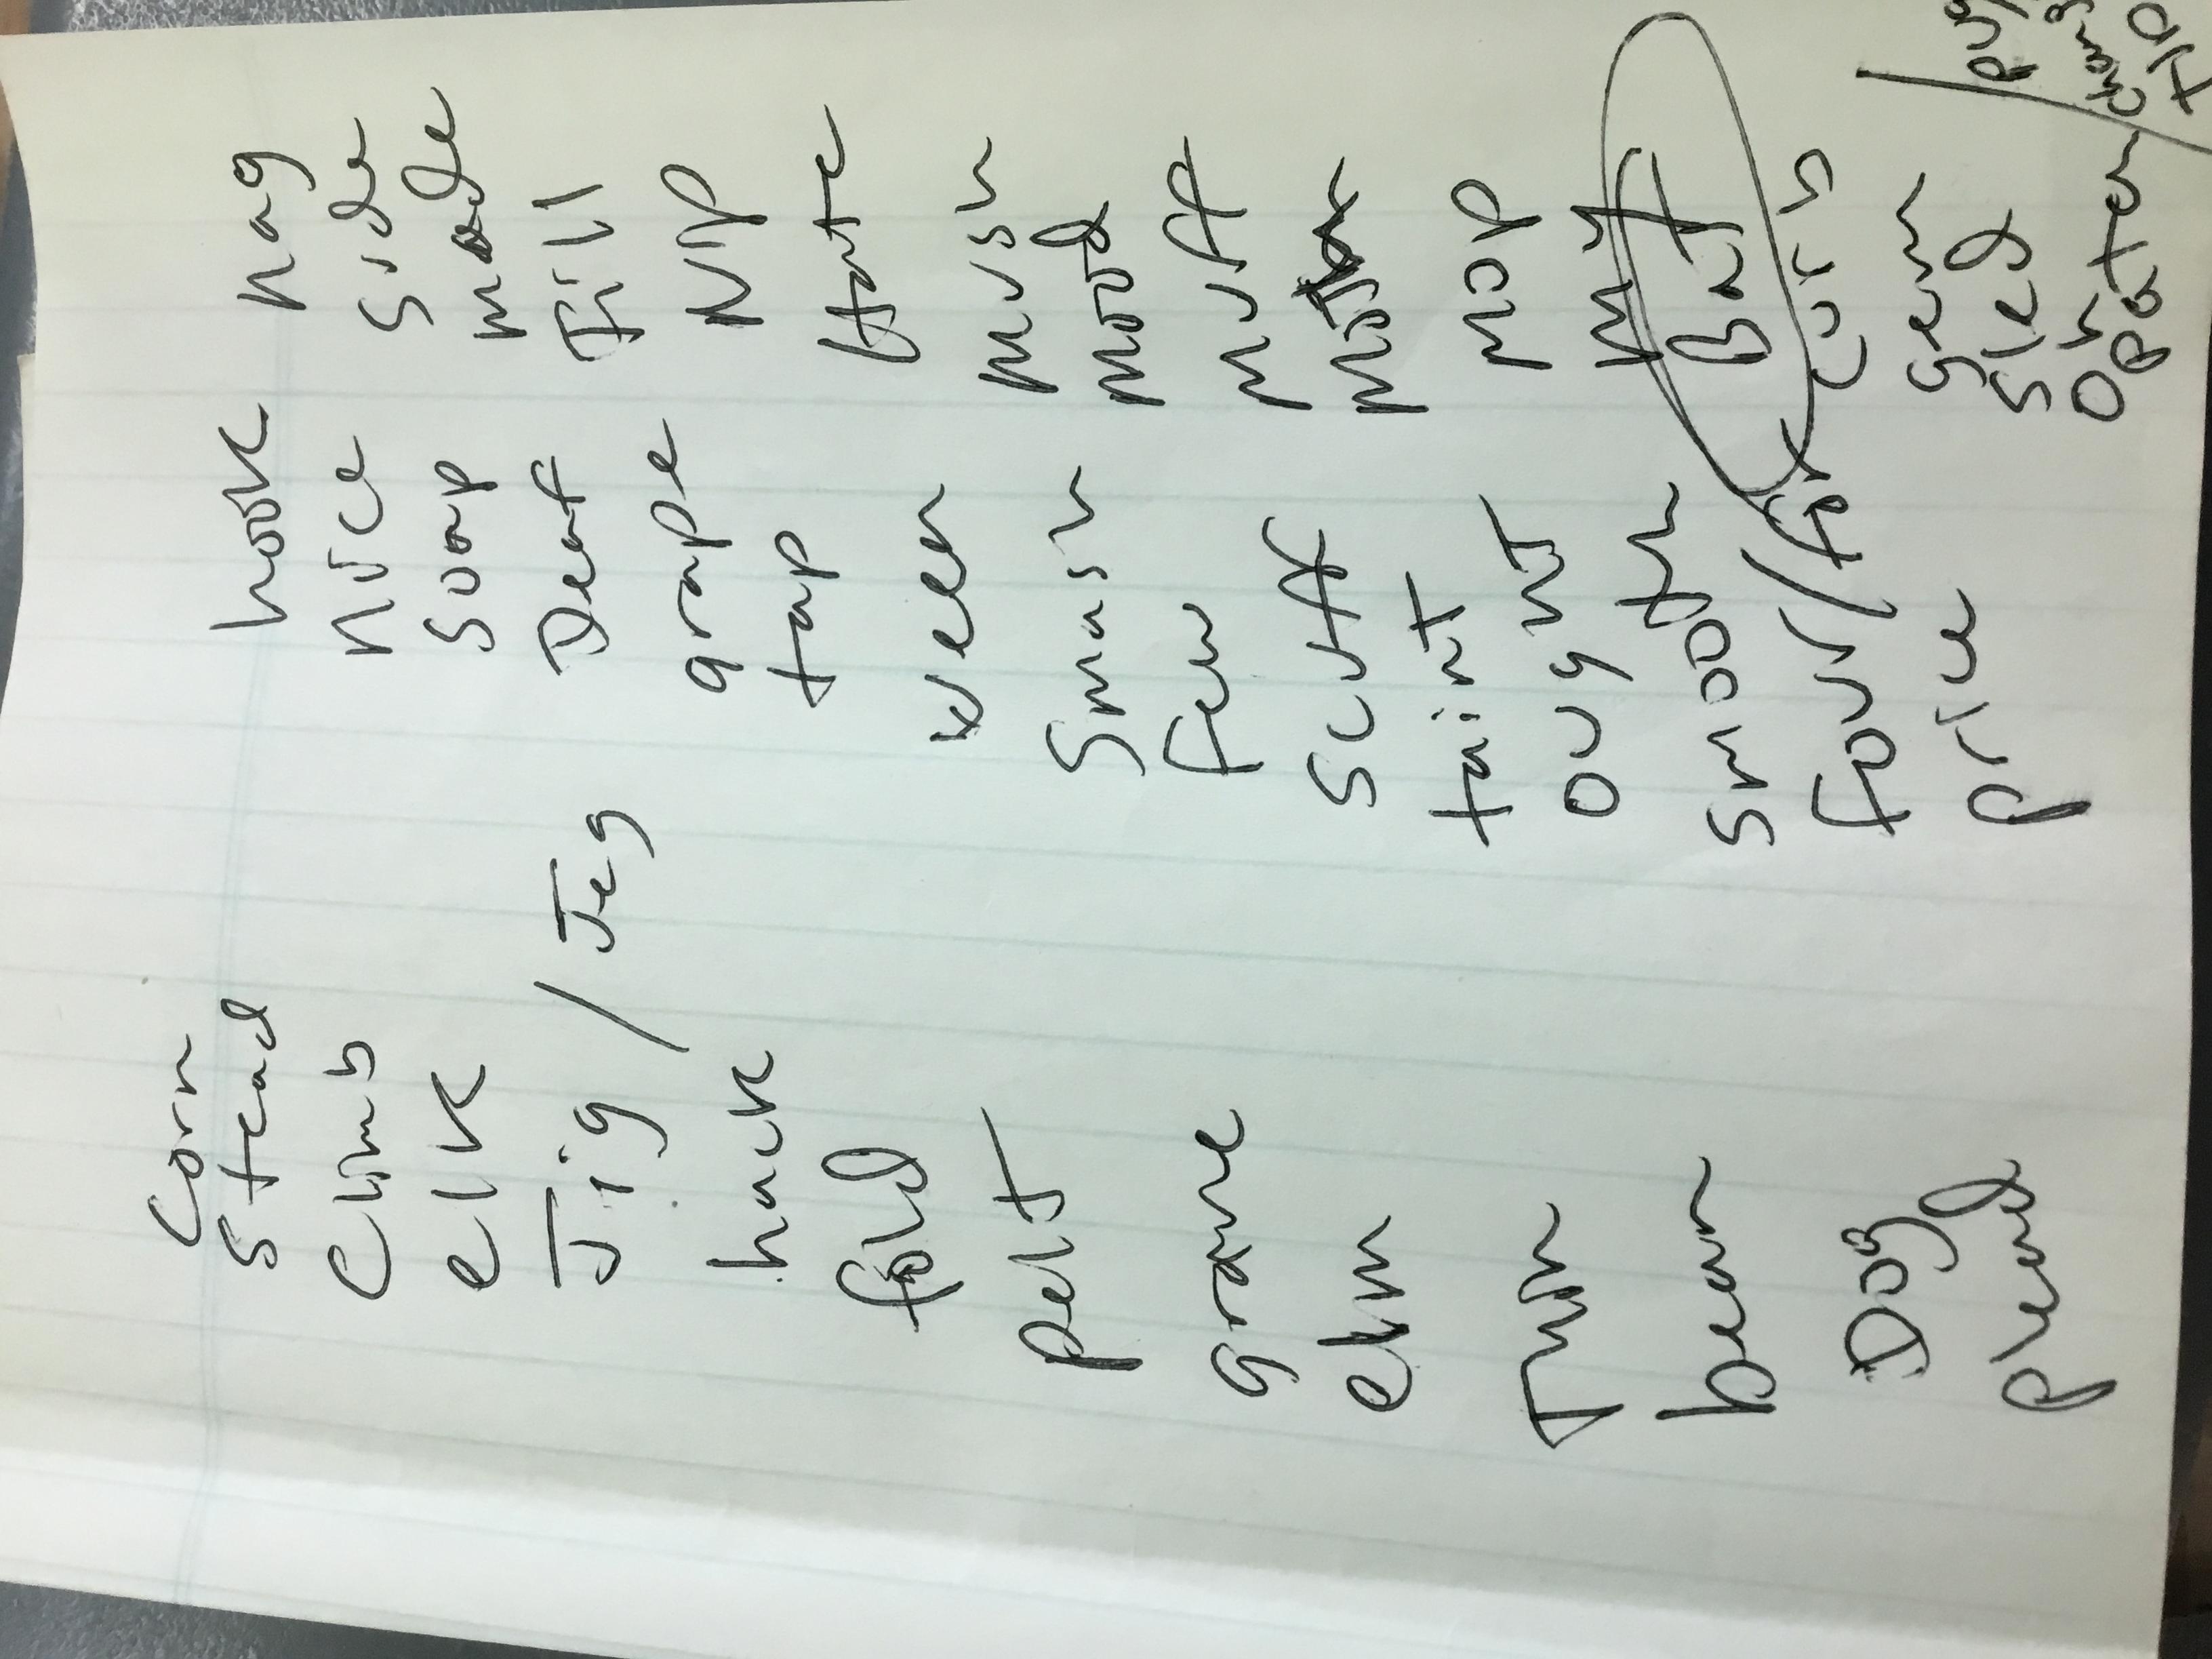 Corn
Stead
Climb
elk
Jig / Jeg
hack
fold
pelt
grave
elm
bean
Dog
plead
hook
Nice
soap
Deaf
grape
tap
ween
Smash
few
scuff
taint
ought
smooth
four/for
prie
nag
side
made
fill
Nip
hate
mush
mood
muff
mop
my
Bat
curb
gem
sled
Oh
pater